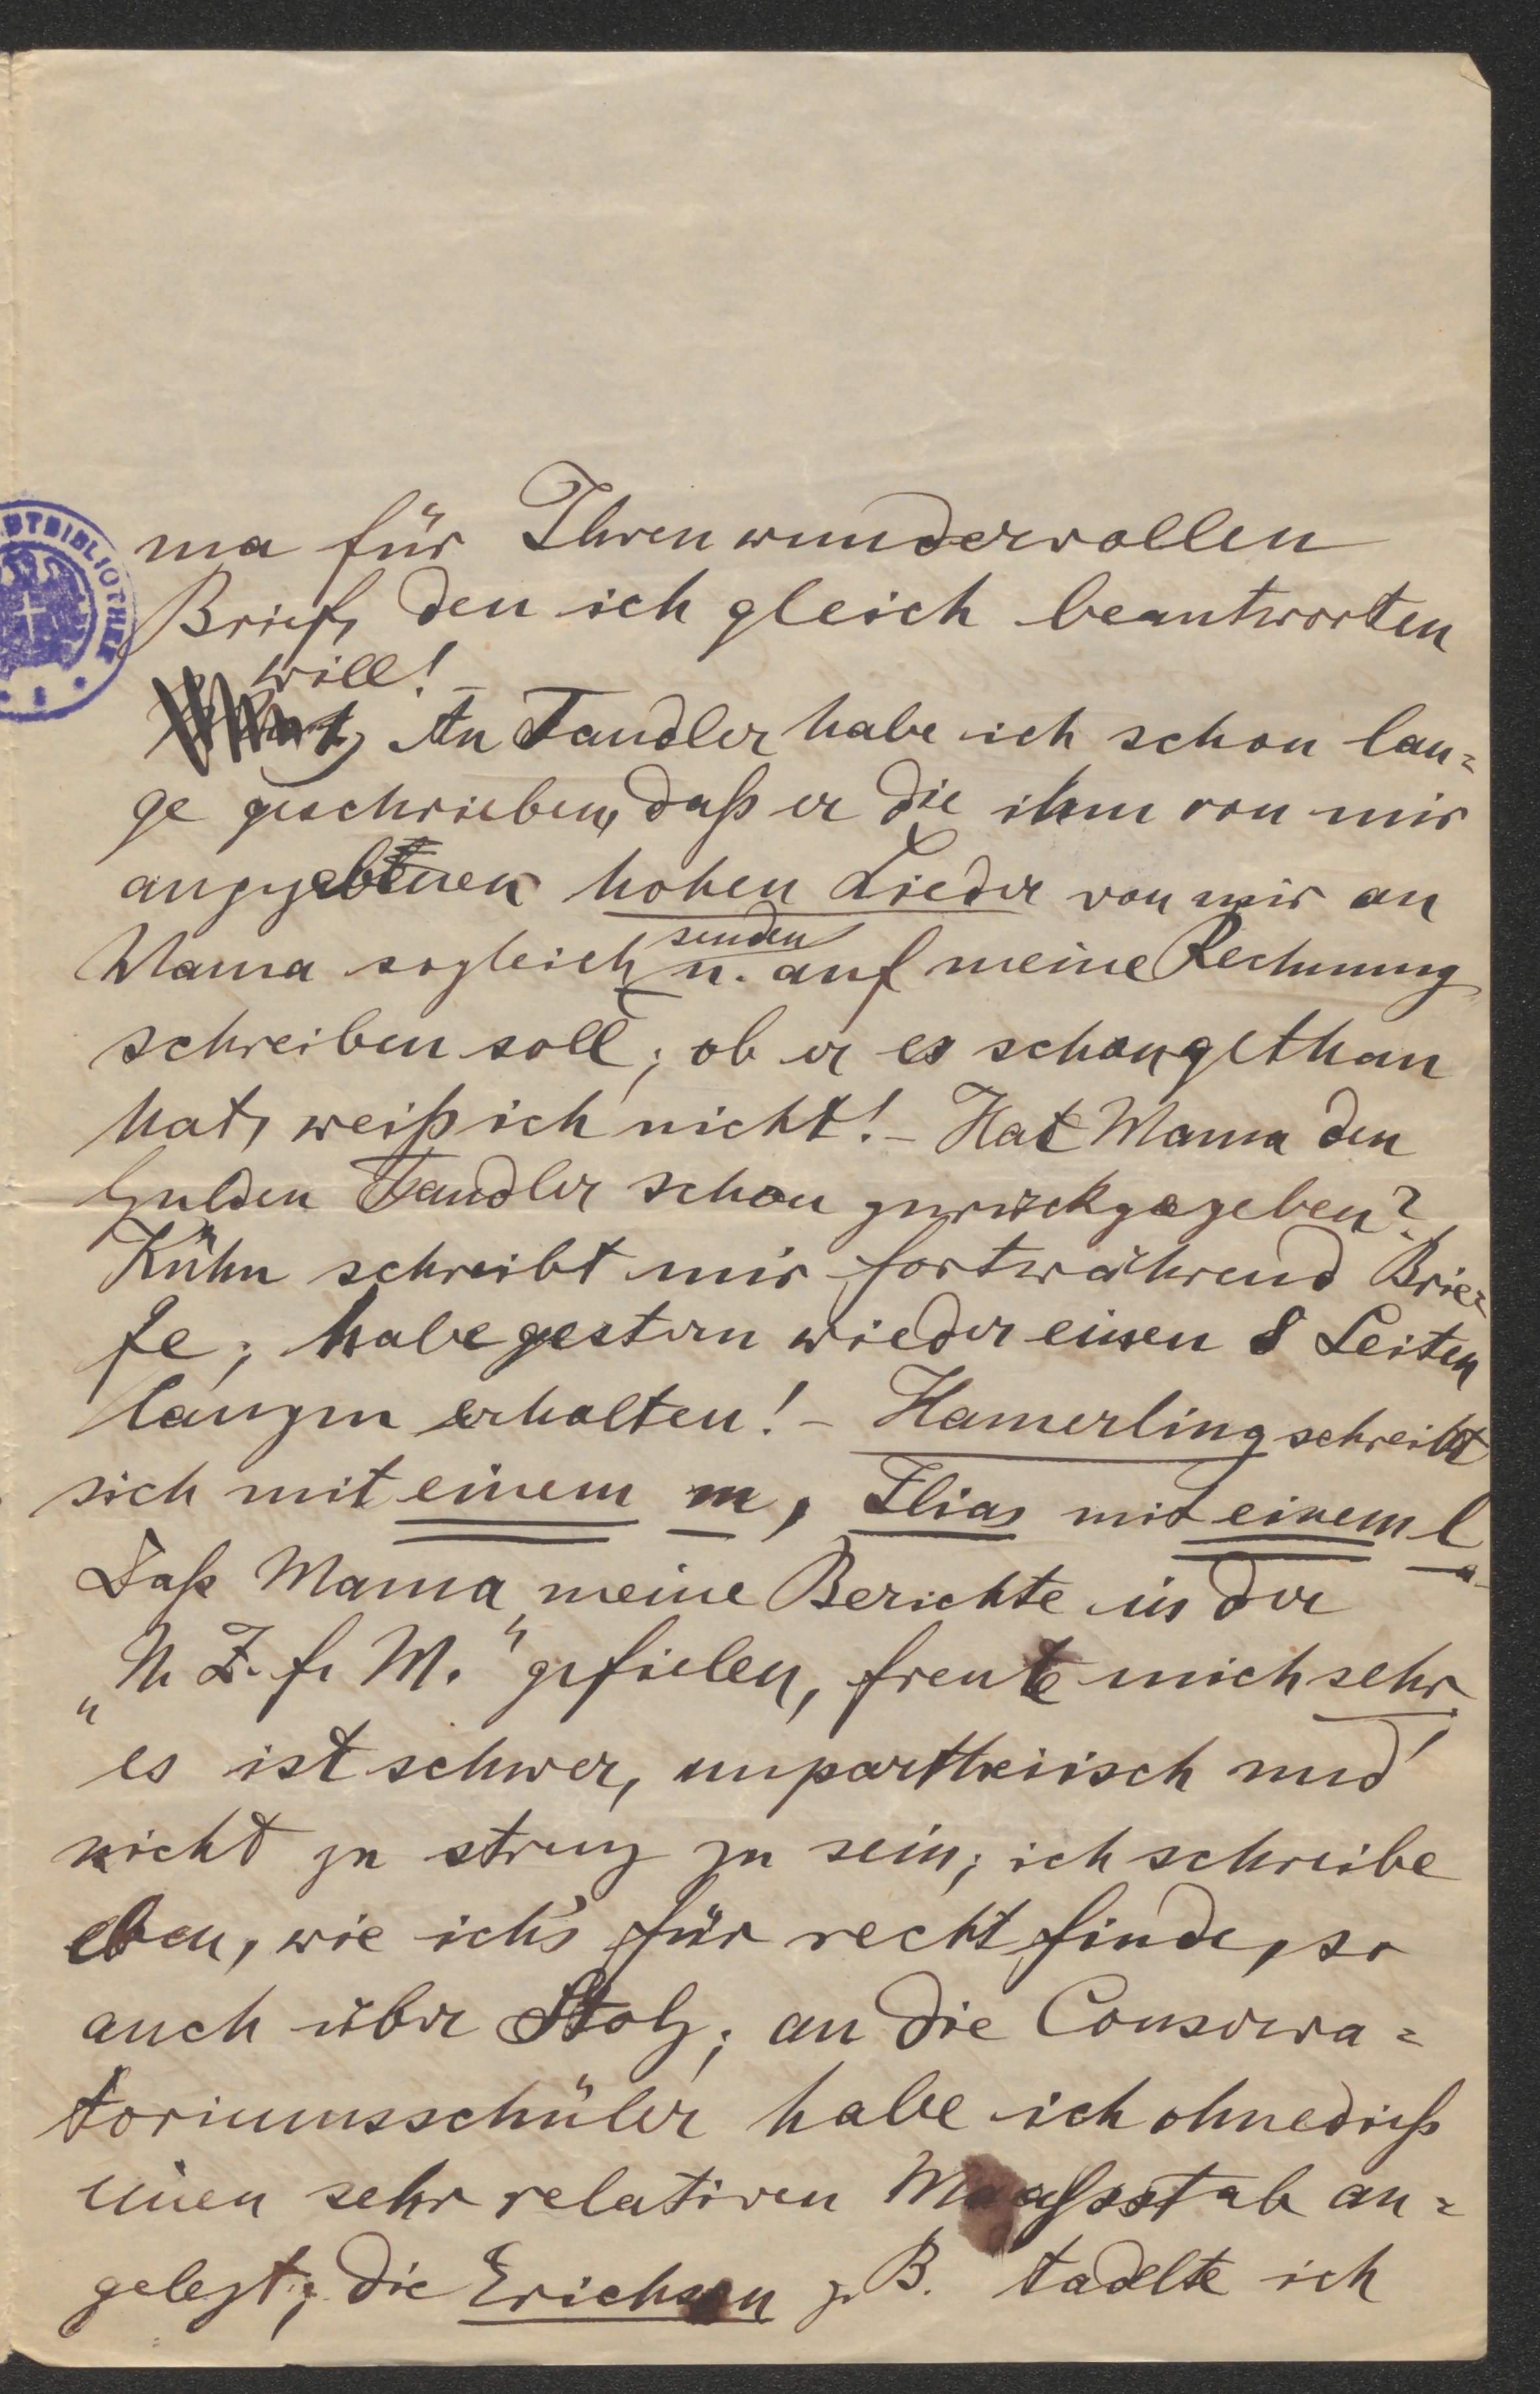 STBIBLIOTHEK
ma für Ihren wundervollen
Brief, den ich gleich beantworten
will! –
An Tandler habe ich schon lan=
ge geschrieben, daß er die ihm von mir
angegebenen hohen Lieder von mir an
Mama sogleich senden u. auf meine Rechnung
schreiben soll; ob er es schon gethan
hat, weiß ich nicht! – Hat Mama den
Gulden Tandler schon zurückgegeben?
Kühn schreibt mir fortwährend Brie=
fe; habe gestern wieder einen 8 Seiten
langen erhalten! – Hamerling schreibt
sich mit einem m, Ilias mit einem l
Daß Mama meine Berichte in der
„N. Z. f. M." gefielen, freute mich sehr,
es ist schwer, unpartheiisch und
nicht zu streng zu sein; ich schreibe
eben, wie ich's für recht finde, so
auch über Stolz; an die Conserva=
toriumsschüler habe ich ohnedieß
einen sehr relativen Maaßstab an=
gelegt; die Erichsen z. B. tadelte ich